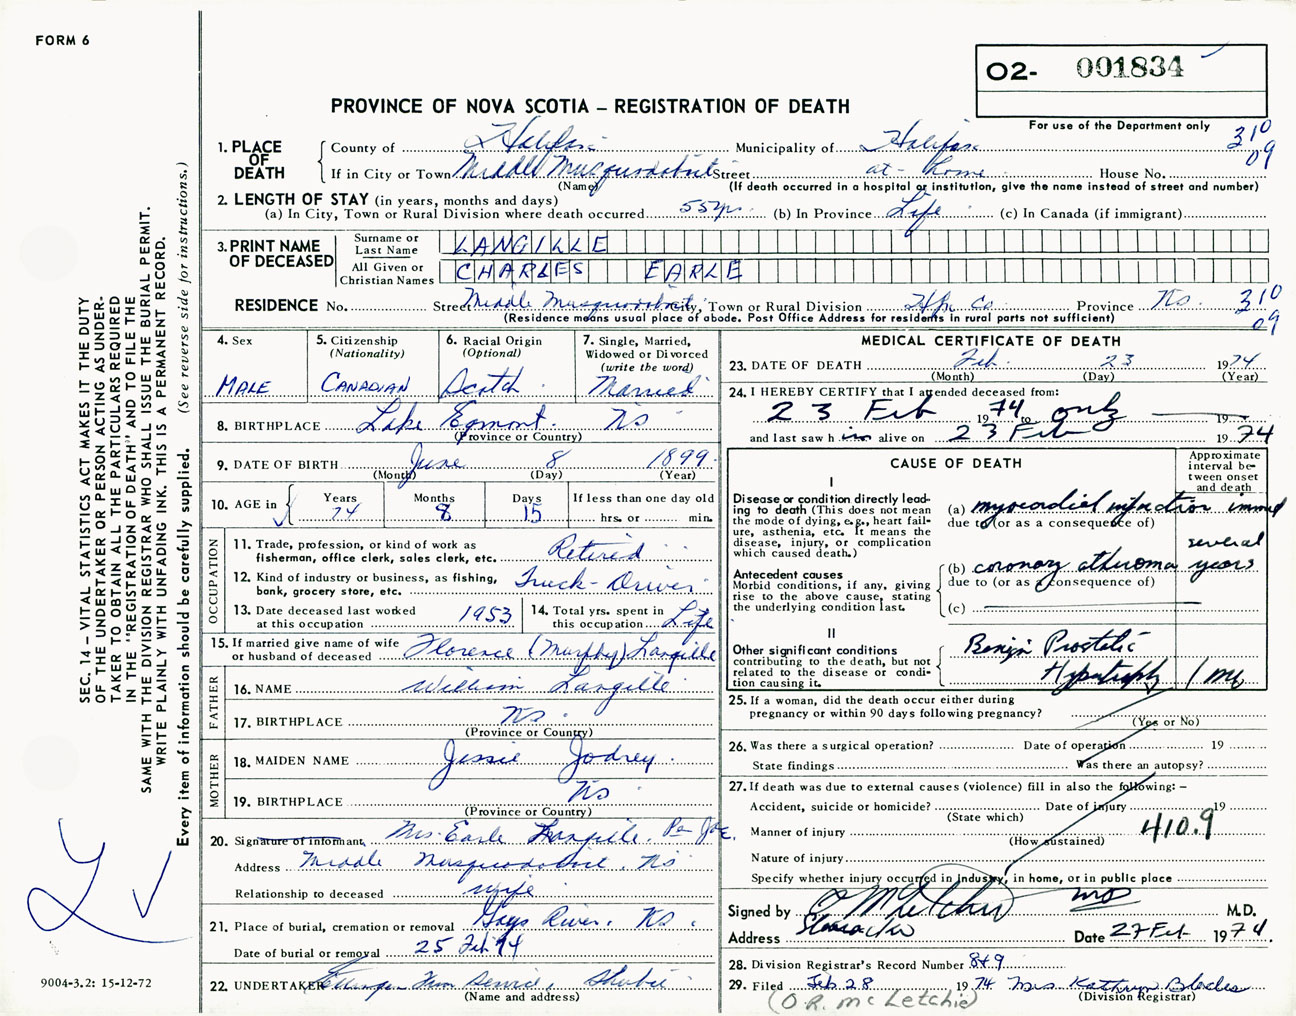 FORM 6
O2- 001834
PROVINCE OF NOVA SCOTIA – REGISTRATION OF DEATH
For use of the Department only
310
09
1. PLACE OF DEATH
County of Halifax Municipality of Halifax
If in City or Town Middle Musquodoboit Street at - home House No.
(Name) (If death occurred in a hospital or institution, give the name instead of street and number)
2. LENGTH OF STAY (in years, months and days)
(a) In City, Town or Rural Division where death occurred 55 yr. (b) In Province Life (c) In Canada (if immigrant)
3. PRINT NAME OF DECEASED
Surname or Last Name LANGILLE
All Given or Christian Names CHARLES EARLE
RESIDENCE No. Street Middle Musquodoboit City, Town or Rural Division Hfx Co Province NS 310
(Residence means usual place of abode. Post Office Address for residents in rural parts not sufficient) 09
4. Sex MALE
5. Citizenship (Nationality) CANADIAN
6. Racial Origin (Optional) Scotch
7. Single, Married, Widowed or Divorced (write the word) Married
8. BIRTHPLACE Lake Egmont. NS
(Province or Country)
9. DATE OF BIRTH June 8 1899
(Month) (Day) (Year)
10. AGE in Years 74 Months 8 Days 15 If less than one day old hrs. or min.
OCCUPATION
11. Trade, profession, or kind of work as fisherman, office clerk, sales clerk, etc. Retired
12. Kind of industry or business, as fishing, bank, grocery store, etc. Truck-Driver
13. Date deceased last worked at this occupation 1953
14. Total yrs. spent in this occupation Life
15. If married give name of wife or husband of deceased Florence (Murphy) Langille
FATHER
16. NAME William Langille
17. BIRTHPLACE NS.
(Province or Country)
MOTHER
18. MAIDEN NAME Jessie Jodrey.
19. BIRTHPLACE NS
(Province or Country)
20. Signature of informant Mrs. Earle Langille. Per
Address Middle Musquodoboit. NS
Relationship to deceased wife
21. Place of burial, cremation or removal Gays River. NS.
Date of burial or removal 25 Feb 74
22. UNDERTAKER Service, Shubie
(Name and address)
MEDICAL CERTIFICATE OF DEATH
23. DATE OF DEATH Feb. 23 1974
(Month) (Day) (Year)
24. I HEREBY CERTIFY that I attended deceased from:
23 Feb 1974 to only 19
and last saw him alive on 23 Feb 1974
CAUSE OF DEATH
Approximate interval between onset and death
I
Disease or condition directly leading to death (This does not mean the mode of dying, e.g., heart failure, asthenia, etc. It means the disease, injury, or complication which caused death.)
(a) myocardial infarction immed
due to (or as a consequence of)
Antecedent causes
Morbid conditions, if any, giving rise to the above cause, stating the underlying condition last.
(b) coronary atheroma several years
due to (or as a consequence of)
(c)
II
Other significant conditions contributing to the death, but not related to the disease or condition causing it.
Benign Prostatic
Hypertrophy
25. If a woman, did the death occur either during pregnancy or within 90 days following pregnancy?
(Yes or No)
26. Was there a surgical operation? Date of operation 19
State findings Was there an autopsy?
27. If death was due to external causes (violence) fill in also the following: –
Accident, suicide or homicide? Date of injury 19
(State which)
Manner of injury 410.9
(How sustained)
Nature of injury
Specify whether injury occurred in industry, in home, or in public place
Signed by O R McLetchie MD M.D.
Address Date 27 Feb 1974.
28. Division Registrar's Record Number 849
29. Filed Feb 28 1974 Mrs Kathryn Blades
(O.R. McLetchie) (Division Registrar)
SEC. 14 – VITAL STATISTICS ACT MAKES IT THE DUTY
OF THE UNDERTAKER OR PERSON ACTING AS UNDER-
TAKER TO OBTAIN ALL THE PARTICULARS REQUIRED
IN THE "REGISTRATION OF DEATH" AND TO FILE THE
SAME WITH THE DIVISION REGISTRAR WHO SHALL ISSUE THE BURIAL PERMIT.
WRITE PLAINLY WITH UNFADING INK. THIS IS A PERMANENT RECORD.
Every item of information should be carefully supplied. (See reverse side for instructions.)
9004-3.2: 15-12-72